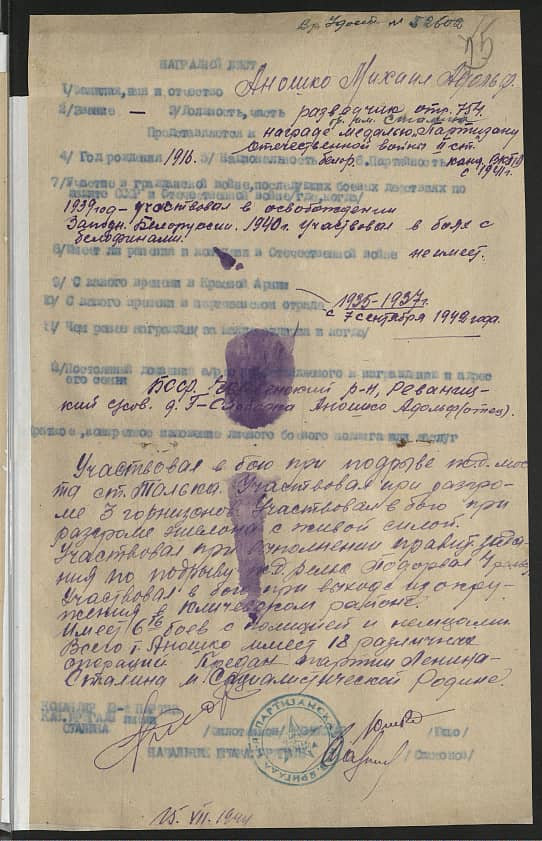 Вр. Удост. № 52602
25
НАГРАДНОЙ ЛИСТ
1/Фамилия, имя и отчество Аношко Михаил Адольф.
2/Звание — 3/Должность, часть разведчик отр. 754
бр. им. Сталина
Представляется к награде медалью "Партизану
Отечественной войны" II ст.
4/ Год рождения 1916. 5/ Национальность белор. 6. Партийность канд. ВКП(б)
с 1941г.
7/Участие в гражданской войне, последующих боевых действиях по
защите СССР и Отечественной войне/где, когда/
1939 год - участвовал в освобождении
Западн. Белоруссии. 1940г. Участвовал в боях с
белофинами.
8/Имеет ли ранения и контузии в Отечественной войне не имеет.
9/ С какого времени в Красной Армии 1935-1937г.
10/ С какого времени в партизанском отряде с 7 сентября 1942 года.
11/ Чем ранее награжден за какие отличия и когда/
12/Постоянный домашний адрес представляемого к награждению и адрес
его семьи
БССР, р-н, Реванич-
кий с/сов. д. Г-Слобода Аношко Адольф (отец).
Краткое, конкретное изложение личного боевого подвига или заслуг
Участвовал в бою при подрыве ж.д. мос-
та ст. Талька. Участвовал при разгро-
ме гарнизонов. Участвовал в бою при
разгроме эшелона с живой силой.
Участвовал при выполнении правит. зада-
ния по подрыву ж.д. рельс Подорвал 4 рельс
Участвовал в бою при выходе из окру-
жения в Кличевском районе.
Имеет 6ть боев с полицией и немцами.
Всего т. Аношко имеет 18 различных
операций Предан партии Ленина-
Сталина и Социалистической Родине.
КОМАНДИР ПАРТИЗ.
БРИГАДЫ имени
СТАЛИНА
НАЧАЛЬНИК ШТАБА БРИГАДЫ
15. VII. 1944